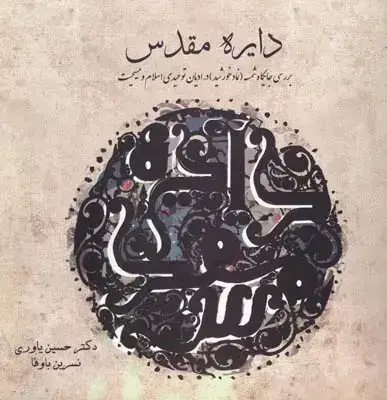 دایره مقدس
بررسی جایگاه شمسه (نماد خورشید) در ادیان توحیدی اسلام و مسیحیت
دایره
مقدس
دکتر حسین یاوری
نسرین باوفا